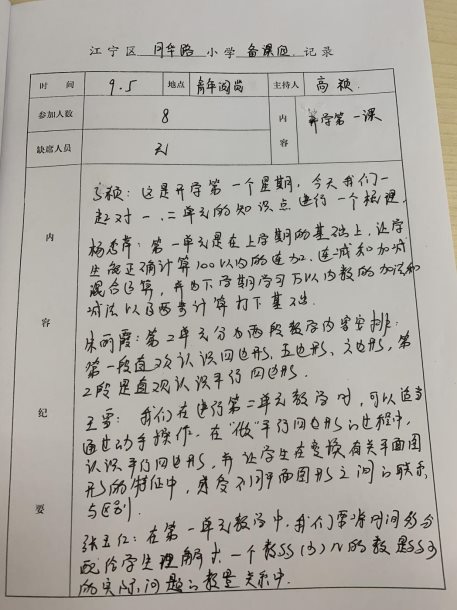 江宁区 月华路 小学 备课组 记录
时间 9.5 地点 青年阅览 主持人 高颖
参加人数 8 内容 开学第一课
缺席人员 无
内容纪要
高颖：这是开学第一个星期，今天我们一
起对一、二单元的知识点进行一个梳理
杨秀萍：第一单元是在上学期的基础上，让学
生能正确计算100以内的连加、连减和加减
混合运算，并为下学期学习万以内数的加法和
减法以及两步计算打下基础.
宋丽霞：第二单元分为两段教学内容安排：
第一段直观认识四边形、五边形、六边形，第
2段是直观认识平行四边形.
王雪：我们在进行第二单元教学时，可以适当
通过动手操作，在“做”平行四边形的过程中，
认识平行四边形，并让学生在变换有关平面图
形的特征中，感受不同平面图形之间的联系
与区别.
张玉仁：在第一单元教学中，我们要将时间多分
配给学生理解求一个数多(少)几的数是多少
的实际问题的数量关系中.